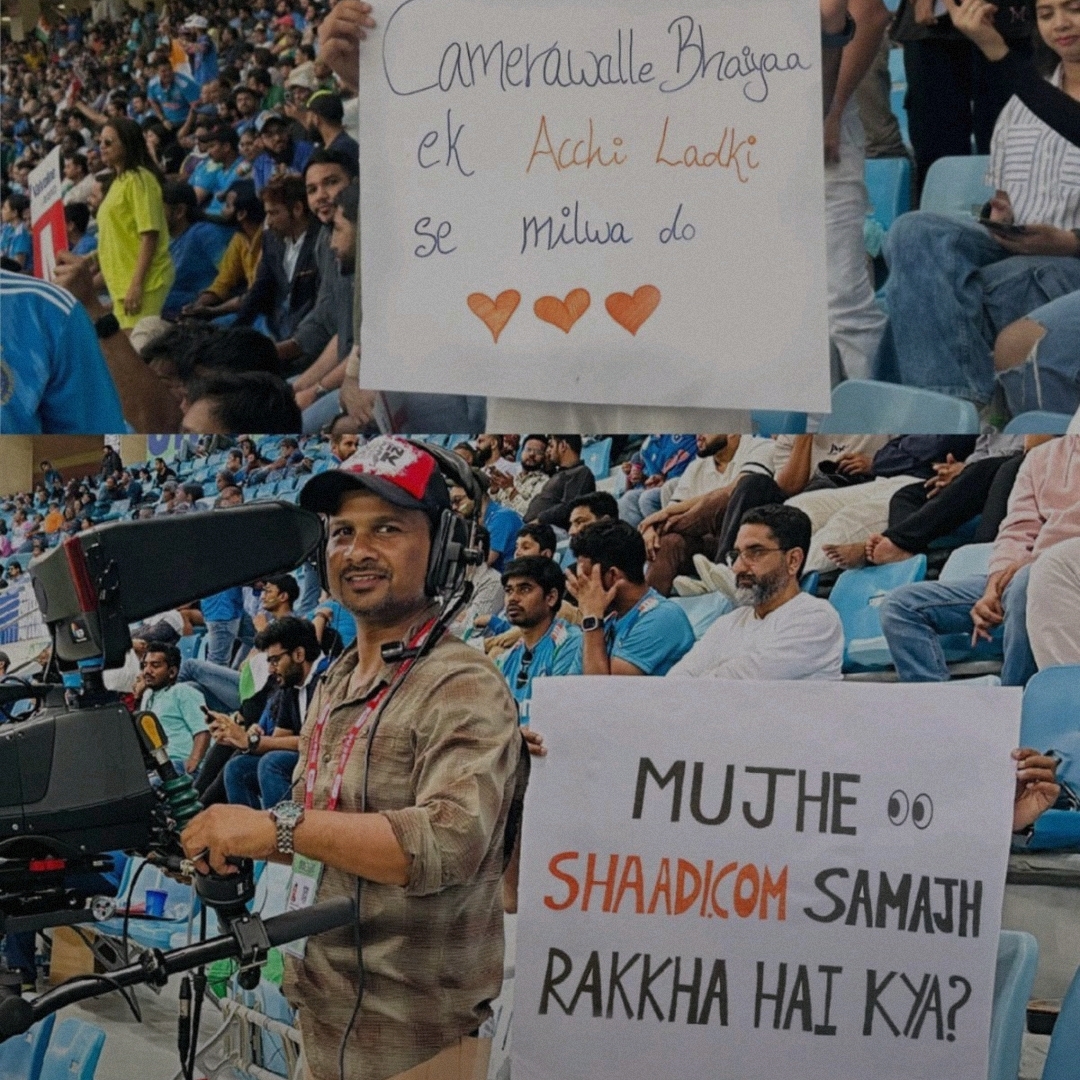 Camerawalle Bhaiyaa
ek Acchi Ladki
se milwa do
MUJHE 👀
SHAADI.COM SAMAJH
RAKKHA HAI KYA?